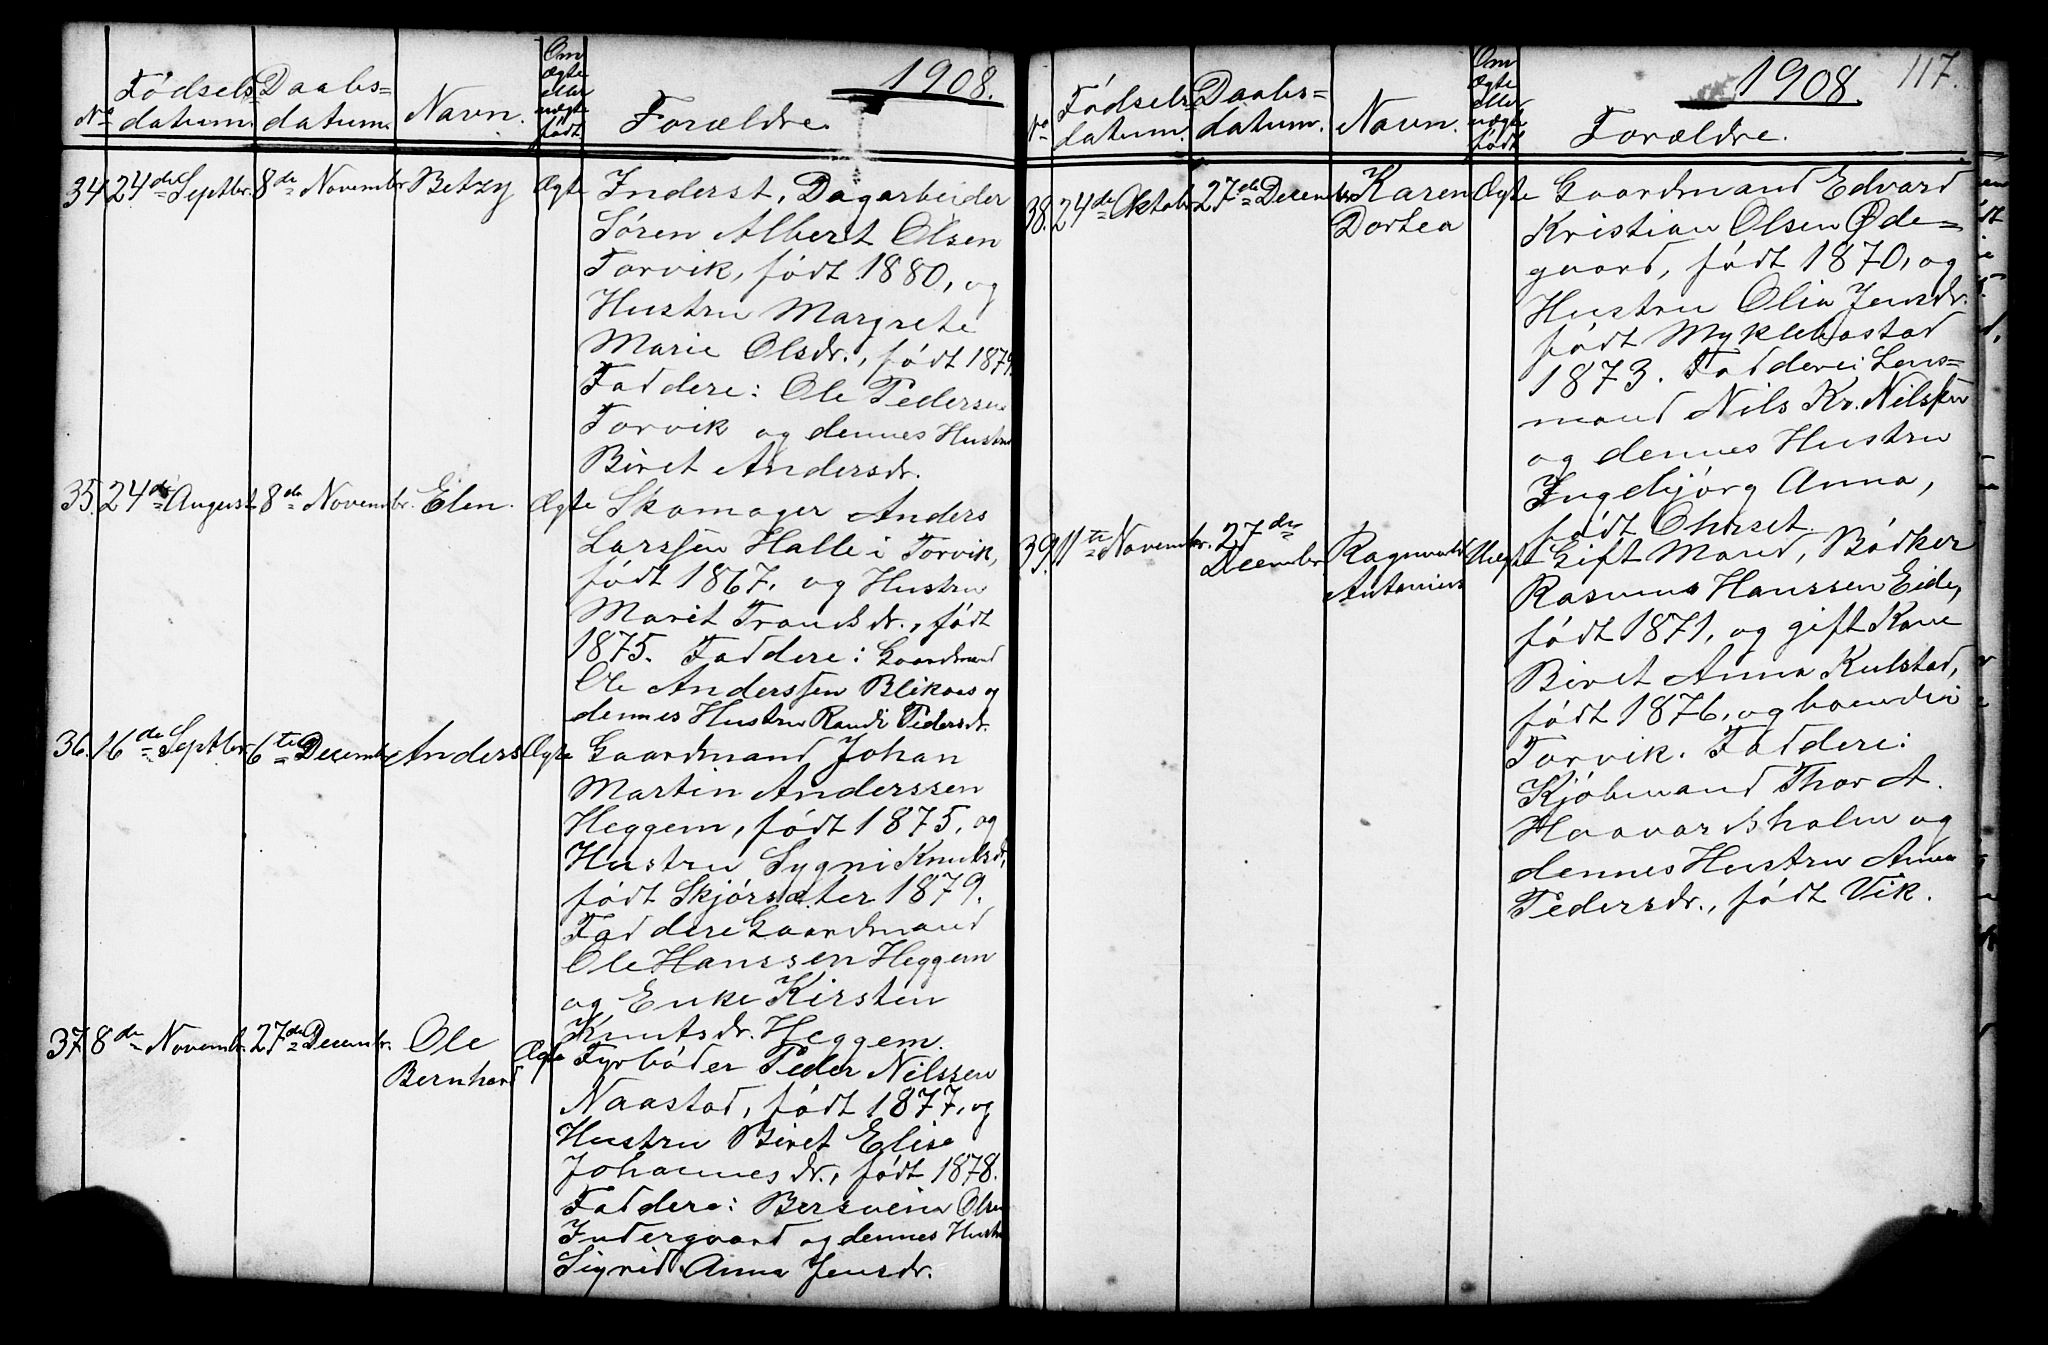 1908.
No Fødsels- datum. Daabs= datum. Navn. Om ægte eller uægte født Forældre.
34. 24de Septbr. 8de Novembr. Betzy Ægte Inderst, Dagarbeider
Søren Albert Olsen
Torvik, født 1880, og
Hustru Margrete
Marie Olsdr., født 1879.
Faddere: Ole Pedersen
Torvik og dennes Hustru
Beret Andersdr.
35. 24de August 8de Novembr. Elen. Ægte Skomager Anders
Larssen Halle i Torvik,
født 1867. og Hustru
Marit Trondsdr., født
1875. Faddere: Gaardmand
Ole Anderssen Blikaas og
dennes Hustru Randi Pedersdr.
36. 16de Septbr. 6te Decembr. Anders Ægte Gaardmand Johan
Martin Anderssen
Heggem, født 1875, og
Hustru Sygni Knutsdr,
født Skjørsæter 1879.
Faddere Gaardmand
Ole Hanssen Heggem
og Enke Kirsten
Knutsdr. Heggem.
37. 8de Novembr. 27de Decembr. Ole Bernhard Ægte Fyrbøder Peder Nilssen
Naastad, født 1877, og
Hustru Beret Elise
Johannesdr., født 1878.
Faddere: Bersvein Olsen
Indergaard og dennes Hustru
Sigrid Anna Jensdr.
1908. 117.
No Fødsels- datum. Daabs= datum. Navn. Om Ægte eller uægte født Forældre.
38. 24de Oktobr. 27de Decembr. Karen Dortea Ægte Gaardmand Edvard
Kristian Olsen Øde=
gaard, født 1870, og
Hustru Olia Jensdr.
født Myklebostad
1873. Faddere: Lens=
mand Nils Kr. Nilssen
og dennes Hustru
Ingebjørg Anna,
født Ohuset.
39. 11te Novembr. 27de Decembr. Ragnvald Antonius Uægte Gift Mand, Bødker
Rasmus Hanssen Eide,
født 1871, og gift Kone
Beret Anna Kulstad,
født 1876, og boende i
Torvik. Faddere:
Kjøbmand Thor A.
Haavardsholm og
dennes Hustru Anna
Pedersdr., født Vik.